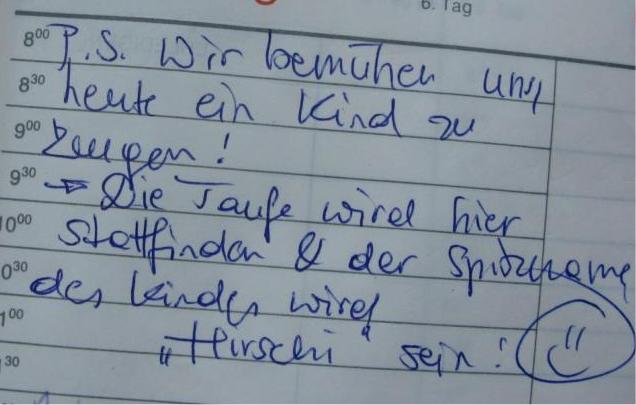 6. Tag
8⁰⁰ P.S. Wir bemühen uns,
8³⁰ heute ein Kind zu
9⁰⁰ zeugen!
9³⁰ → Die Taufe wird hier
10⁰⁰ stattfinden & der Spitzname
0³⁰ des Kindes wird
1⁰⁰ „Hirschi“ sein!
30